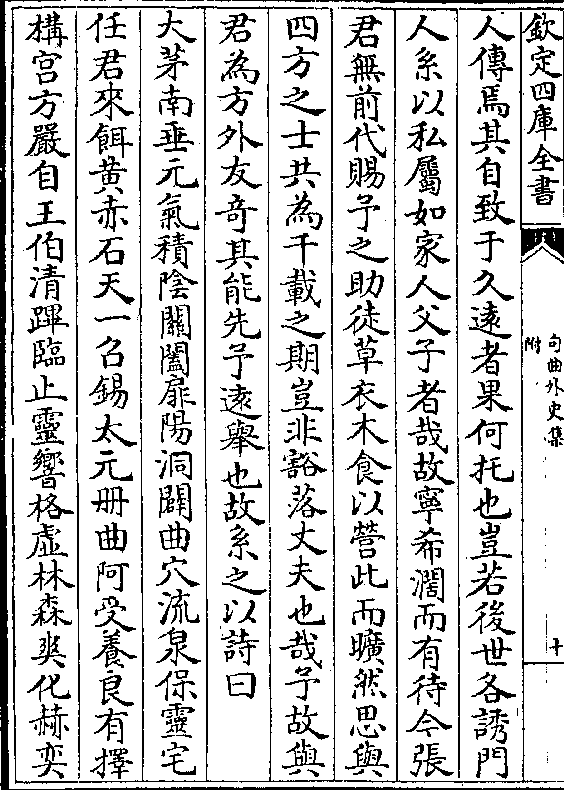 欽定四庫全書
句曲外史集
附
十
人傳焉其自致于久遠者果何托也豈若後世各誘門
人系以私屬如家人父子者哉故寧希濶而有待今張
君無前代賜予之助徒草衣木食以營此而曠然思與
四方之士共為千載之期豈非豁落丈夫也哉予故與
君為方外友竒其能先予遠舉也故系之以詩曰
大茅南垂元氣積陰闗闔扉陽洞闢曲穴流泉保靈宅
任君來餌黄赤石天一召錫太元册曲阿受養良有擇
構宫方嚴自王伯清蹕臨止靈響格虚林森爽化赫奕